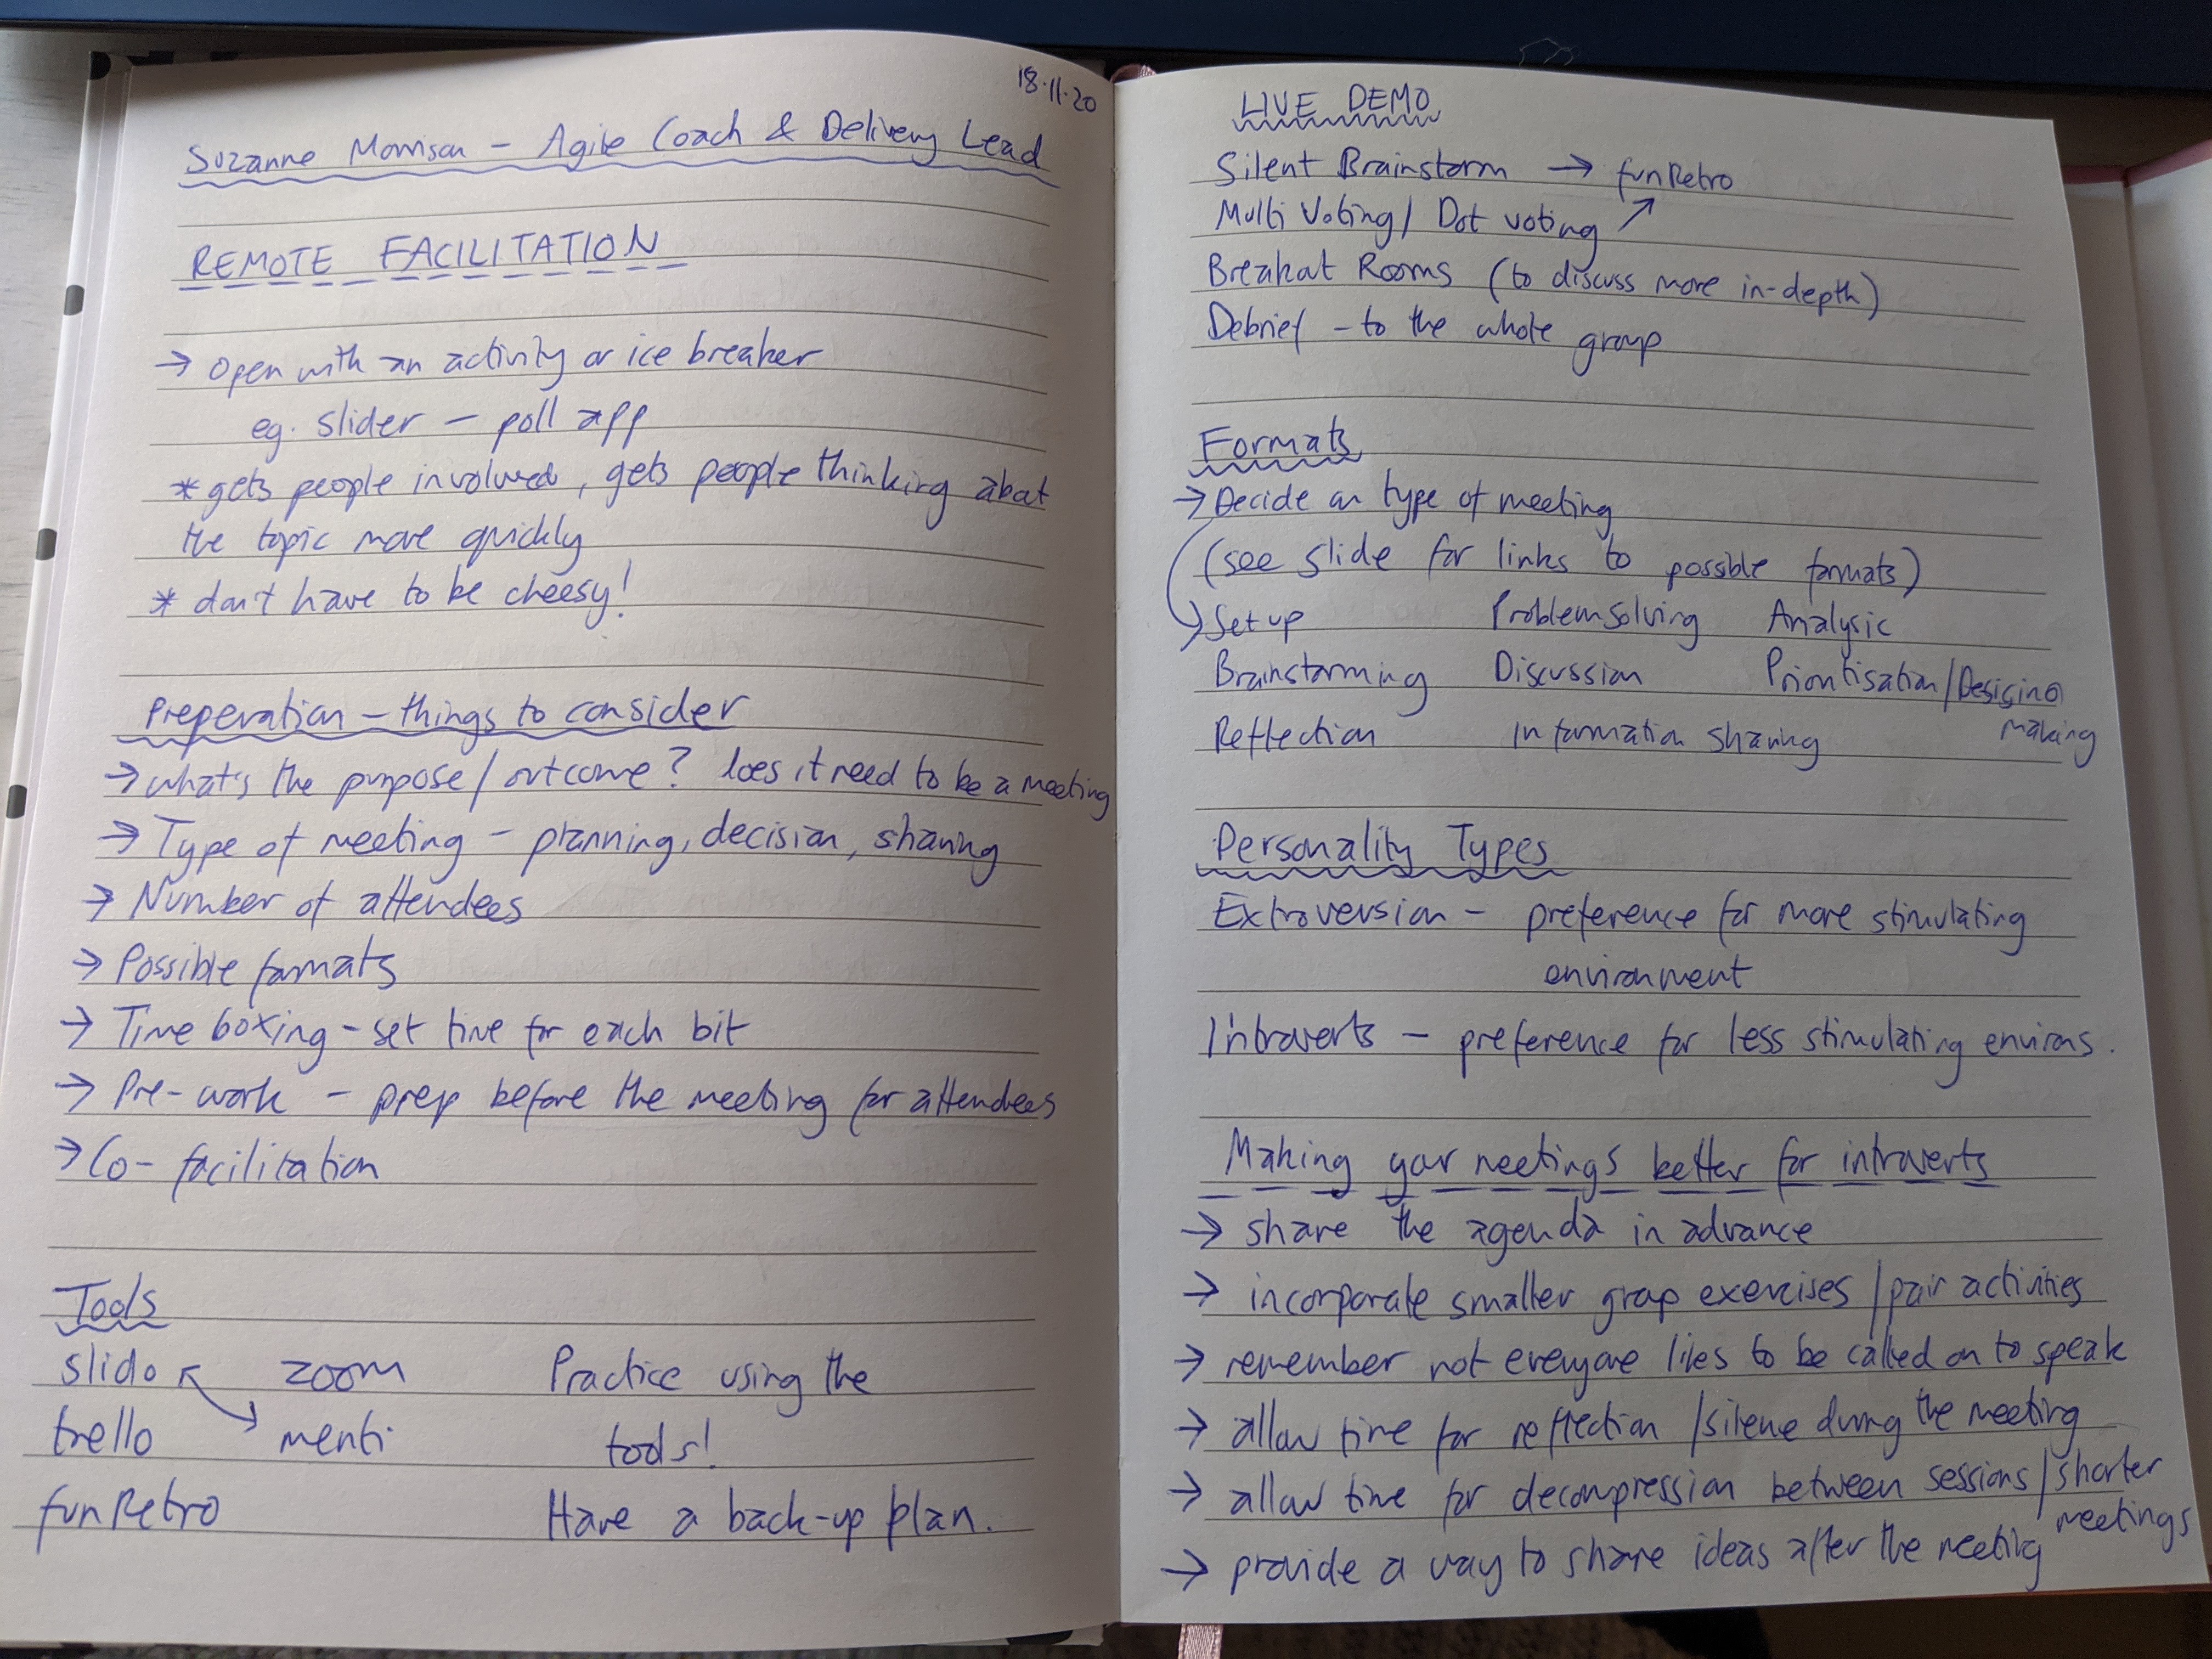 18.11.20
Suzanne Morrison - Agile Coach & Delivery Lead
REMOTE FACILITATION
→ Open with an activity or ice breaker
eg. slider - poll app
* gets people involved, gets people thinking about
the topic more quickly
* don't have to be cheesy!
Preperation - things to consider
→ what's the purpose/outcome? does it need to be a meeting
→ Type of meeting - planning, decision, sharing
→ Number of attendees
→ Possible formats
→ Time boxing - set time for each bit
→ Pre-work - prep before the meeting for attendees
→ Co-facilitation
Tools
slido zoom Practice using the
trello menti tools!
funRetro Have a back-up plan.
LIVE DEMO
Silent Brainstorm → funRetro
Multi Voting/ Dot voting ↗
Breakout Rooms (to discuss more in-depth)
Debrief - to the whole group
Formats
→ Decide on type of meeting
(see slide for links to possible formats)
→ Set up Problem solving Analysic
Brainstorming Discussion Prioritisation/Desicino
making
Reflection Information sharing
Personality Types
Extroversion - preference for more stimulating
environment
Introverts - preference for less stimulating environs.
Making your meetings better for introverts
→ share the agenda in advance
→ incorporate smaller group exercises/pair activities
→ remember not everyone likes to be called on to speak
→ allow time for reflection/silence during the meeting
→ allow time for decompression between sessions/shorter
meetings
→ provide a way to share ideas after the meeting